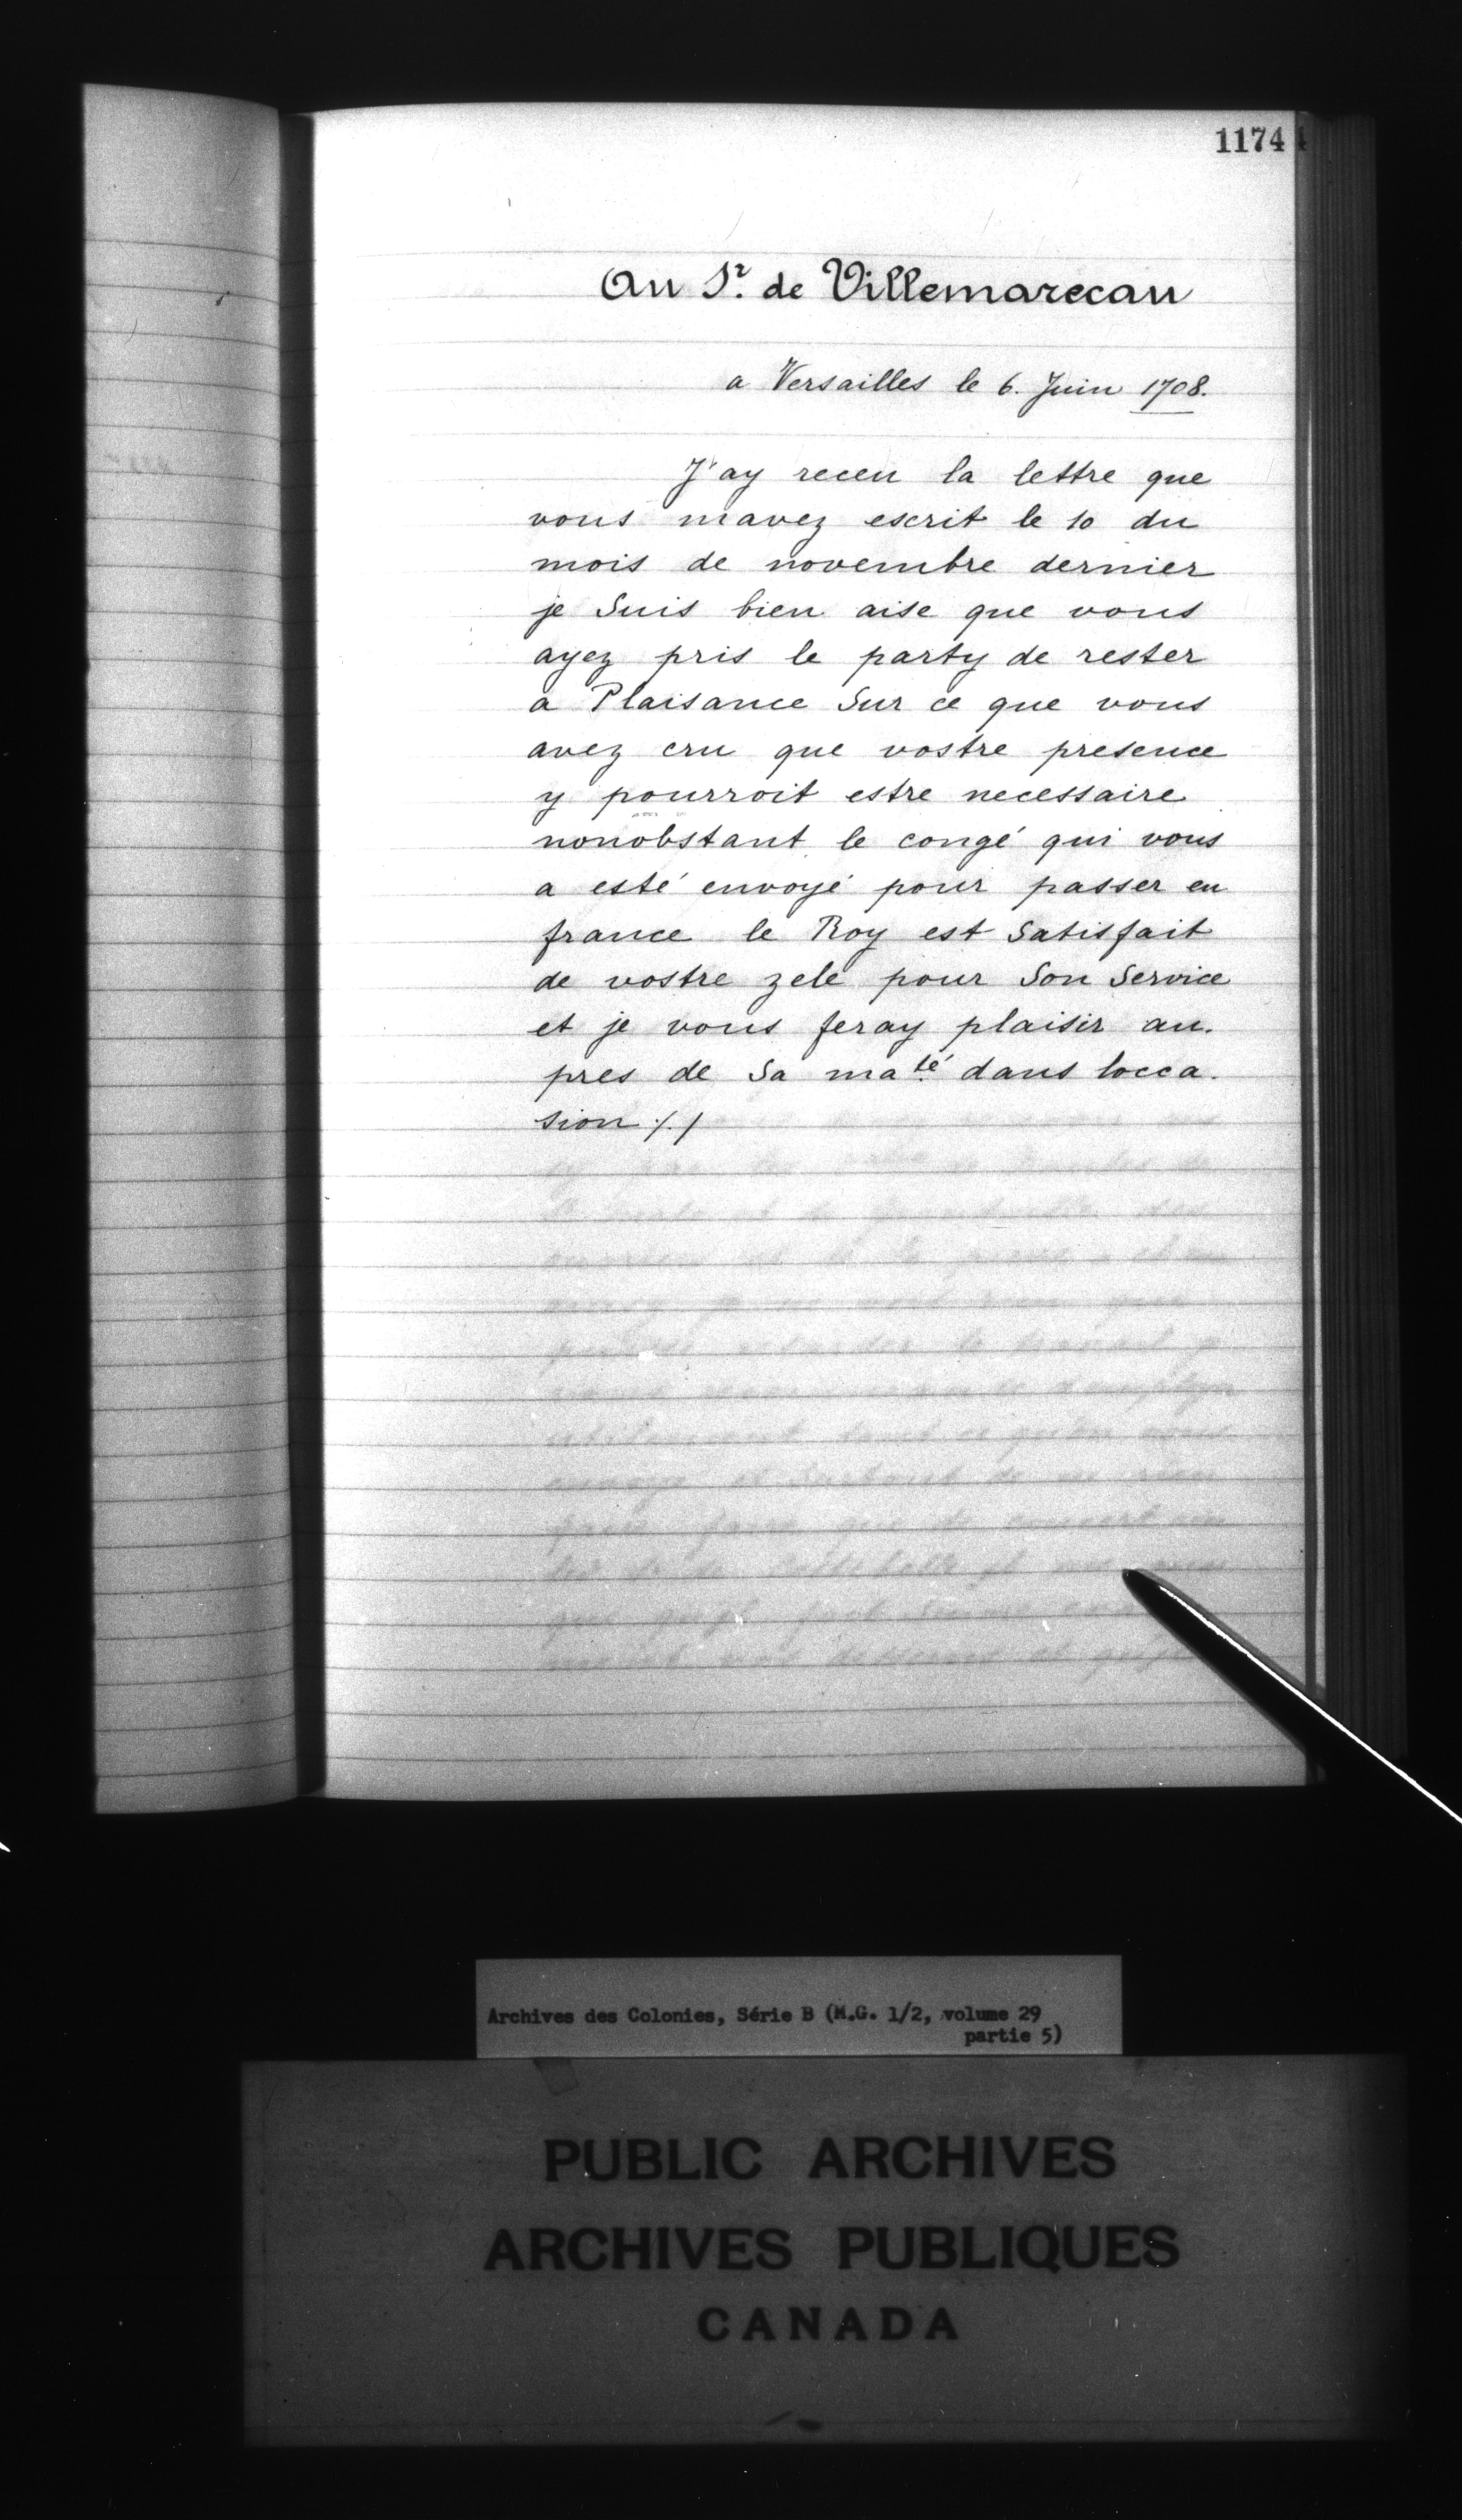 1174
Au Sr. de Villemarecau
a Versailles le 6. Juin 1708.
J'ay receu la lettre que
vous mavez escrit le 10 du
mois de novembre dernier
je Suis bien aise que vous
ayez pris le party de rester
a Plaisance Sur ce que vous
avez cru que vostre presence
y pourroit estre necessaire
nonobstant le congé qui vous
a esté envoyé pour passer en
france le Roy est Satisfait
de vostre zele pour Son Service
et je vous feray plaisir au.
pres de Sa maté dans locca.
sion /./
Archives des Colonies, Série B (M.G. 1/2, volume 29
partie 5)
PUBLIC ARCHIVES
ARCHIVES PUBLIQUES
CANADA